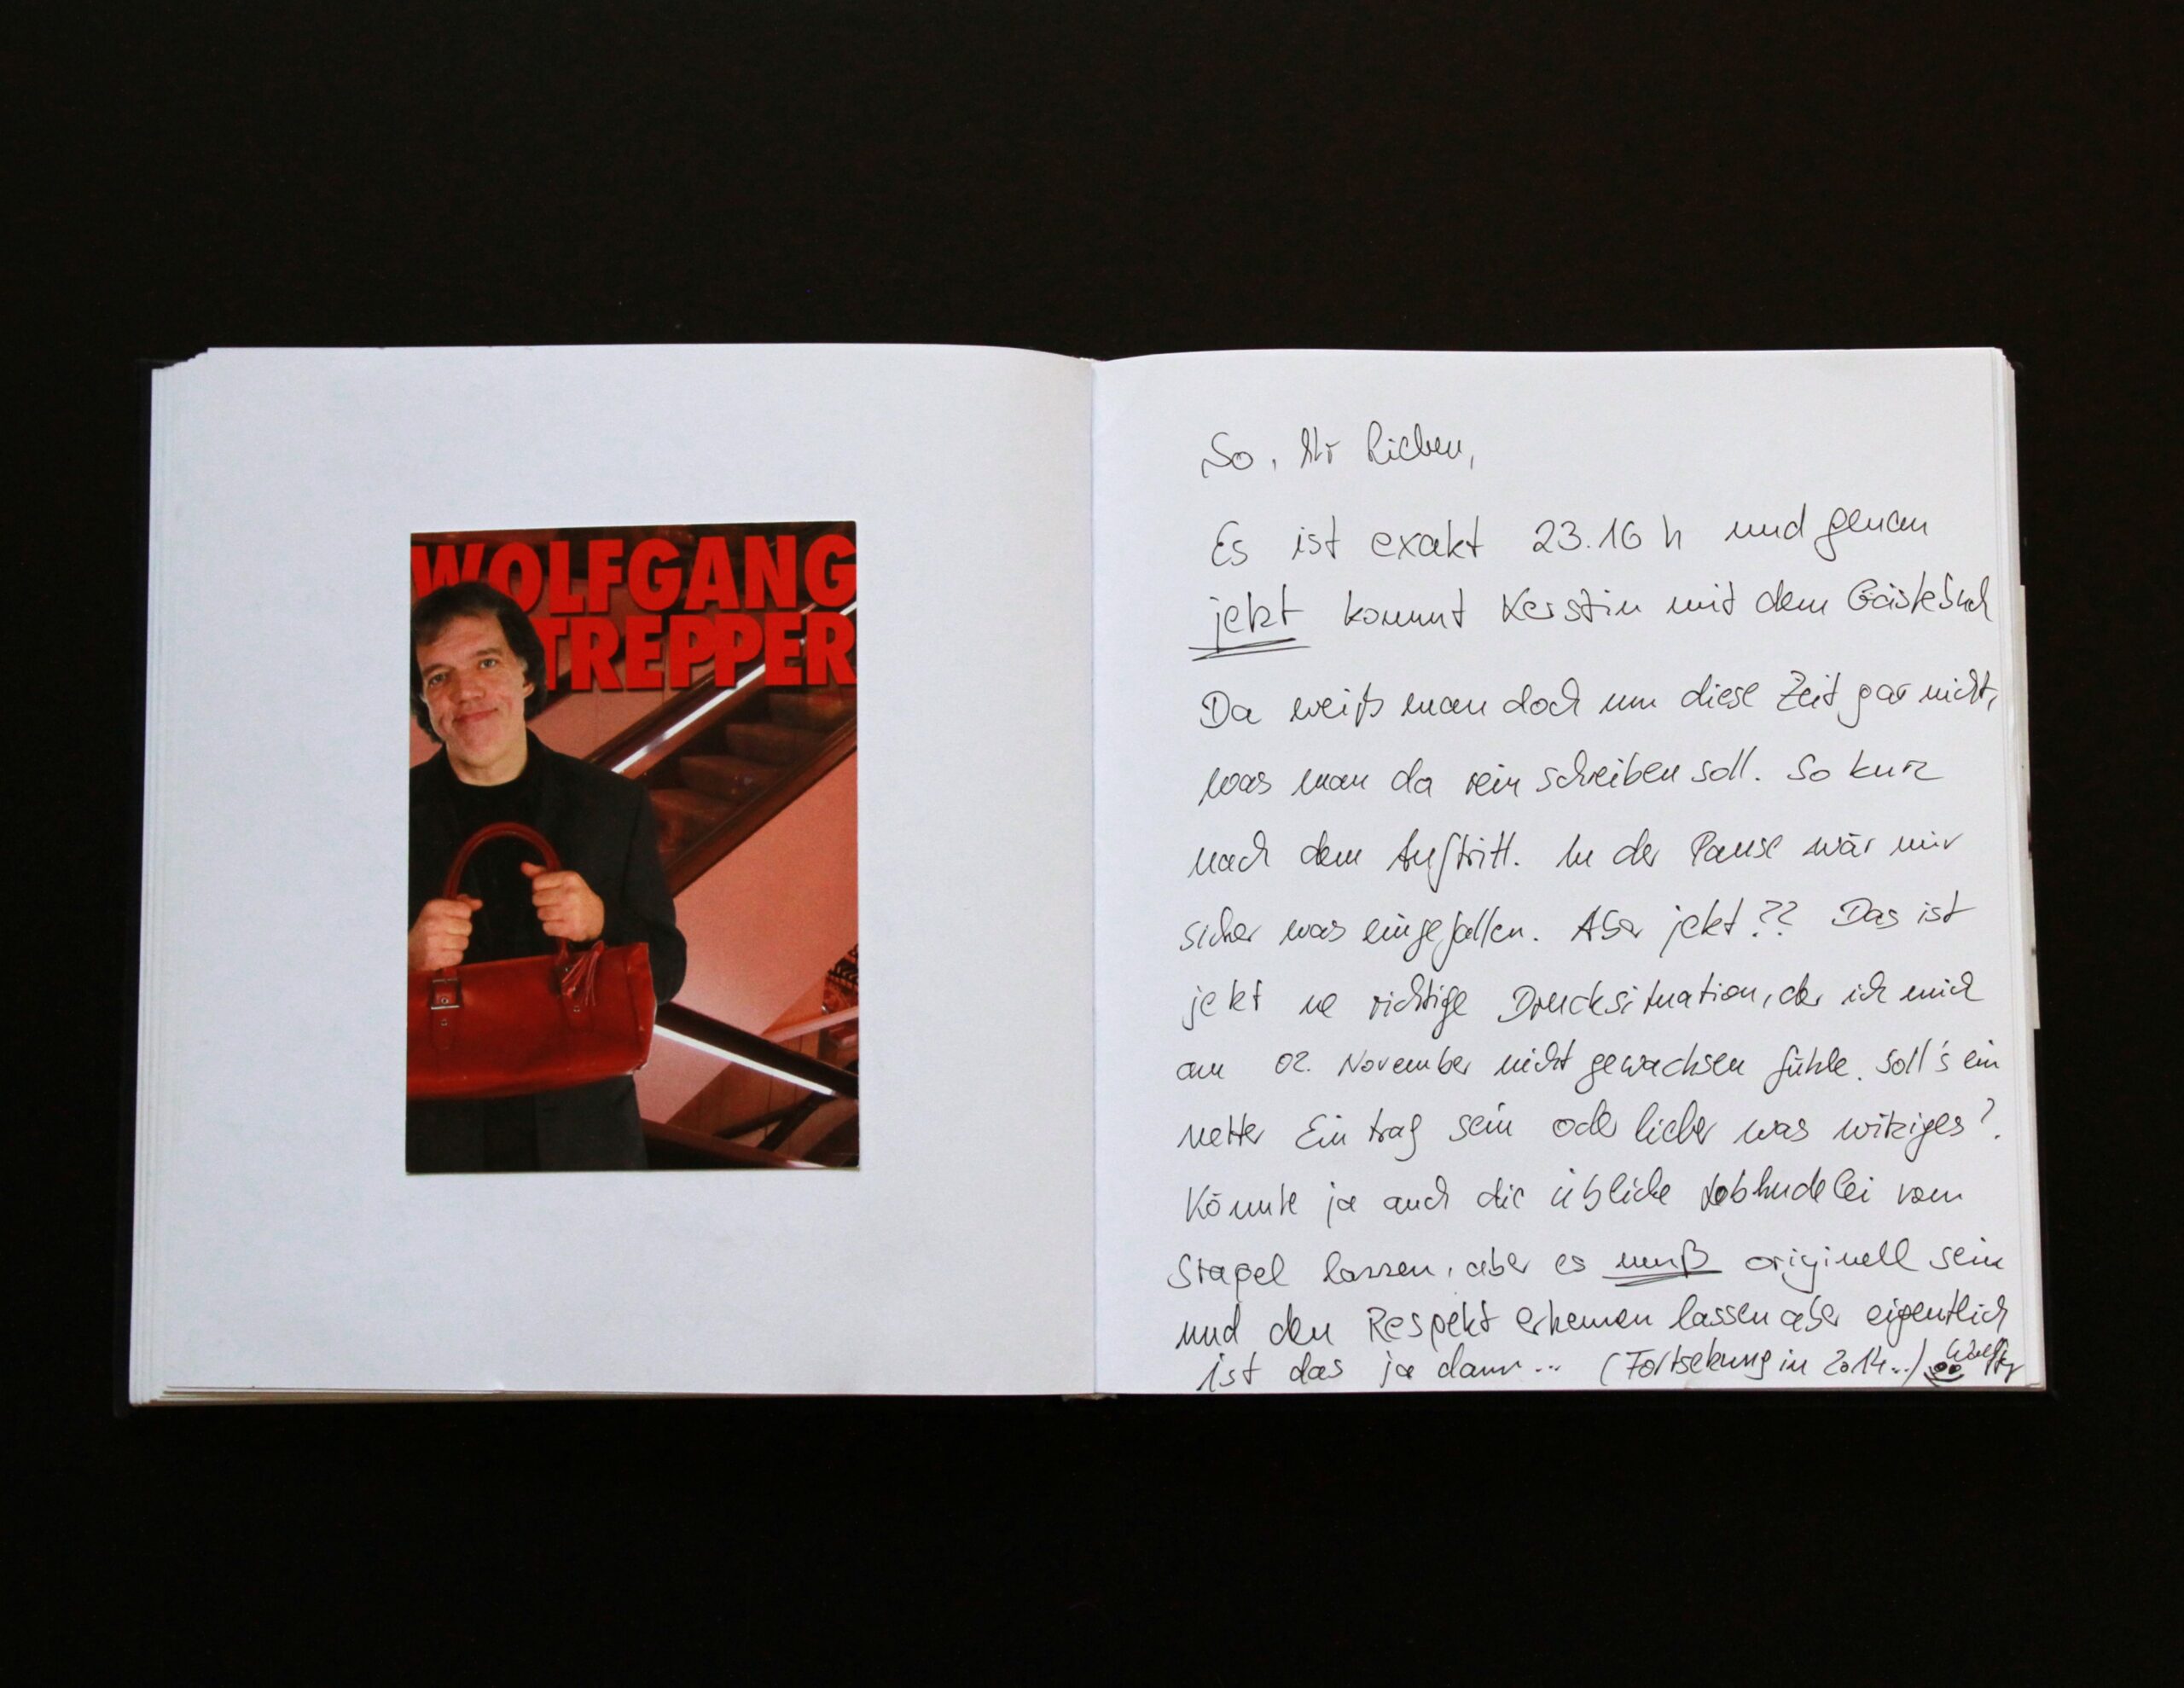 WOLFGANG
TREPPER
So, Ihr Lieben,
Es ist exakt 23.16 h und genau
jetzt kommt Kerstin mit dem Gästebuch
Da weiß man doch um diese Zeit gar nicht,
was man da rein schreiben soll. So kurz
nach dem Auftritt. In der Pause wär mir
sicher was eingefallen. Aber jetzt?? Das ist
jetzt ne richtige Drucksituation, der ich mich
am 02. November nicht gewachsen fühle. Soll's ein
netter Eintrag sein oder lieber was witziges?
Könnte ja auch die übliche Lobhudelei vom
Stapel lassen, aber es muß originell sein
und den Respekt erkennen lassen aber eigentlich
ist das ja dann... (Fortsetzung in 2014...)